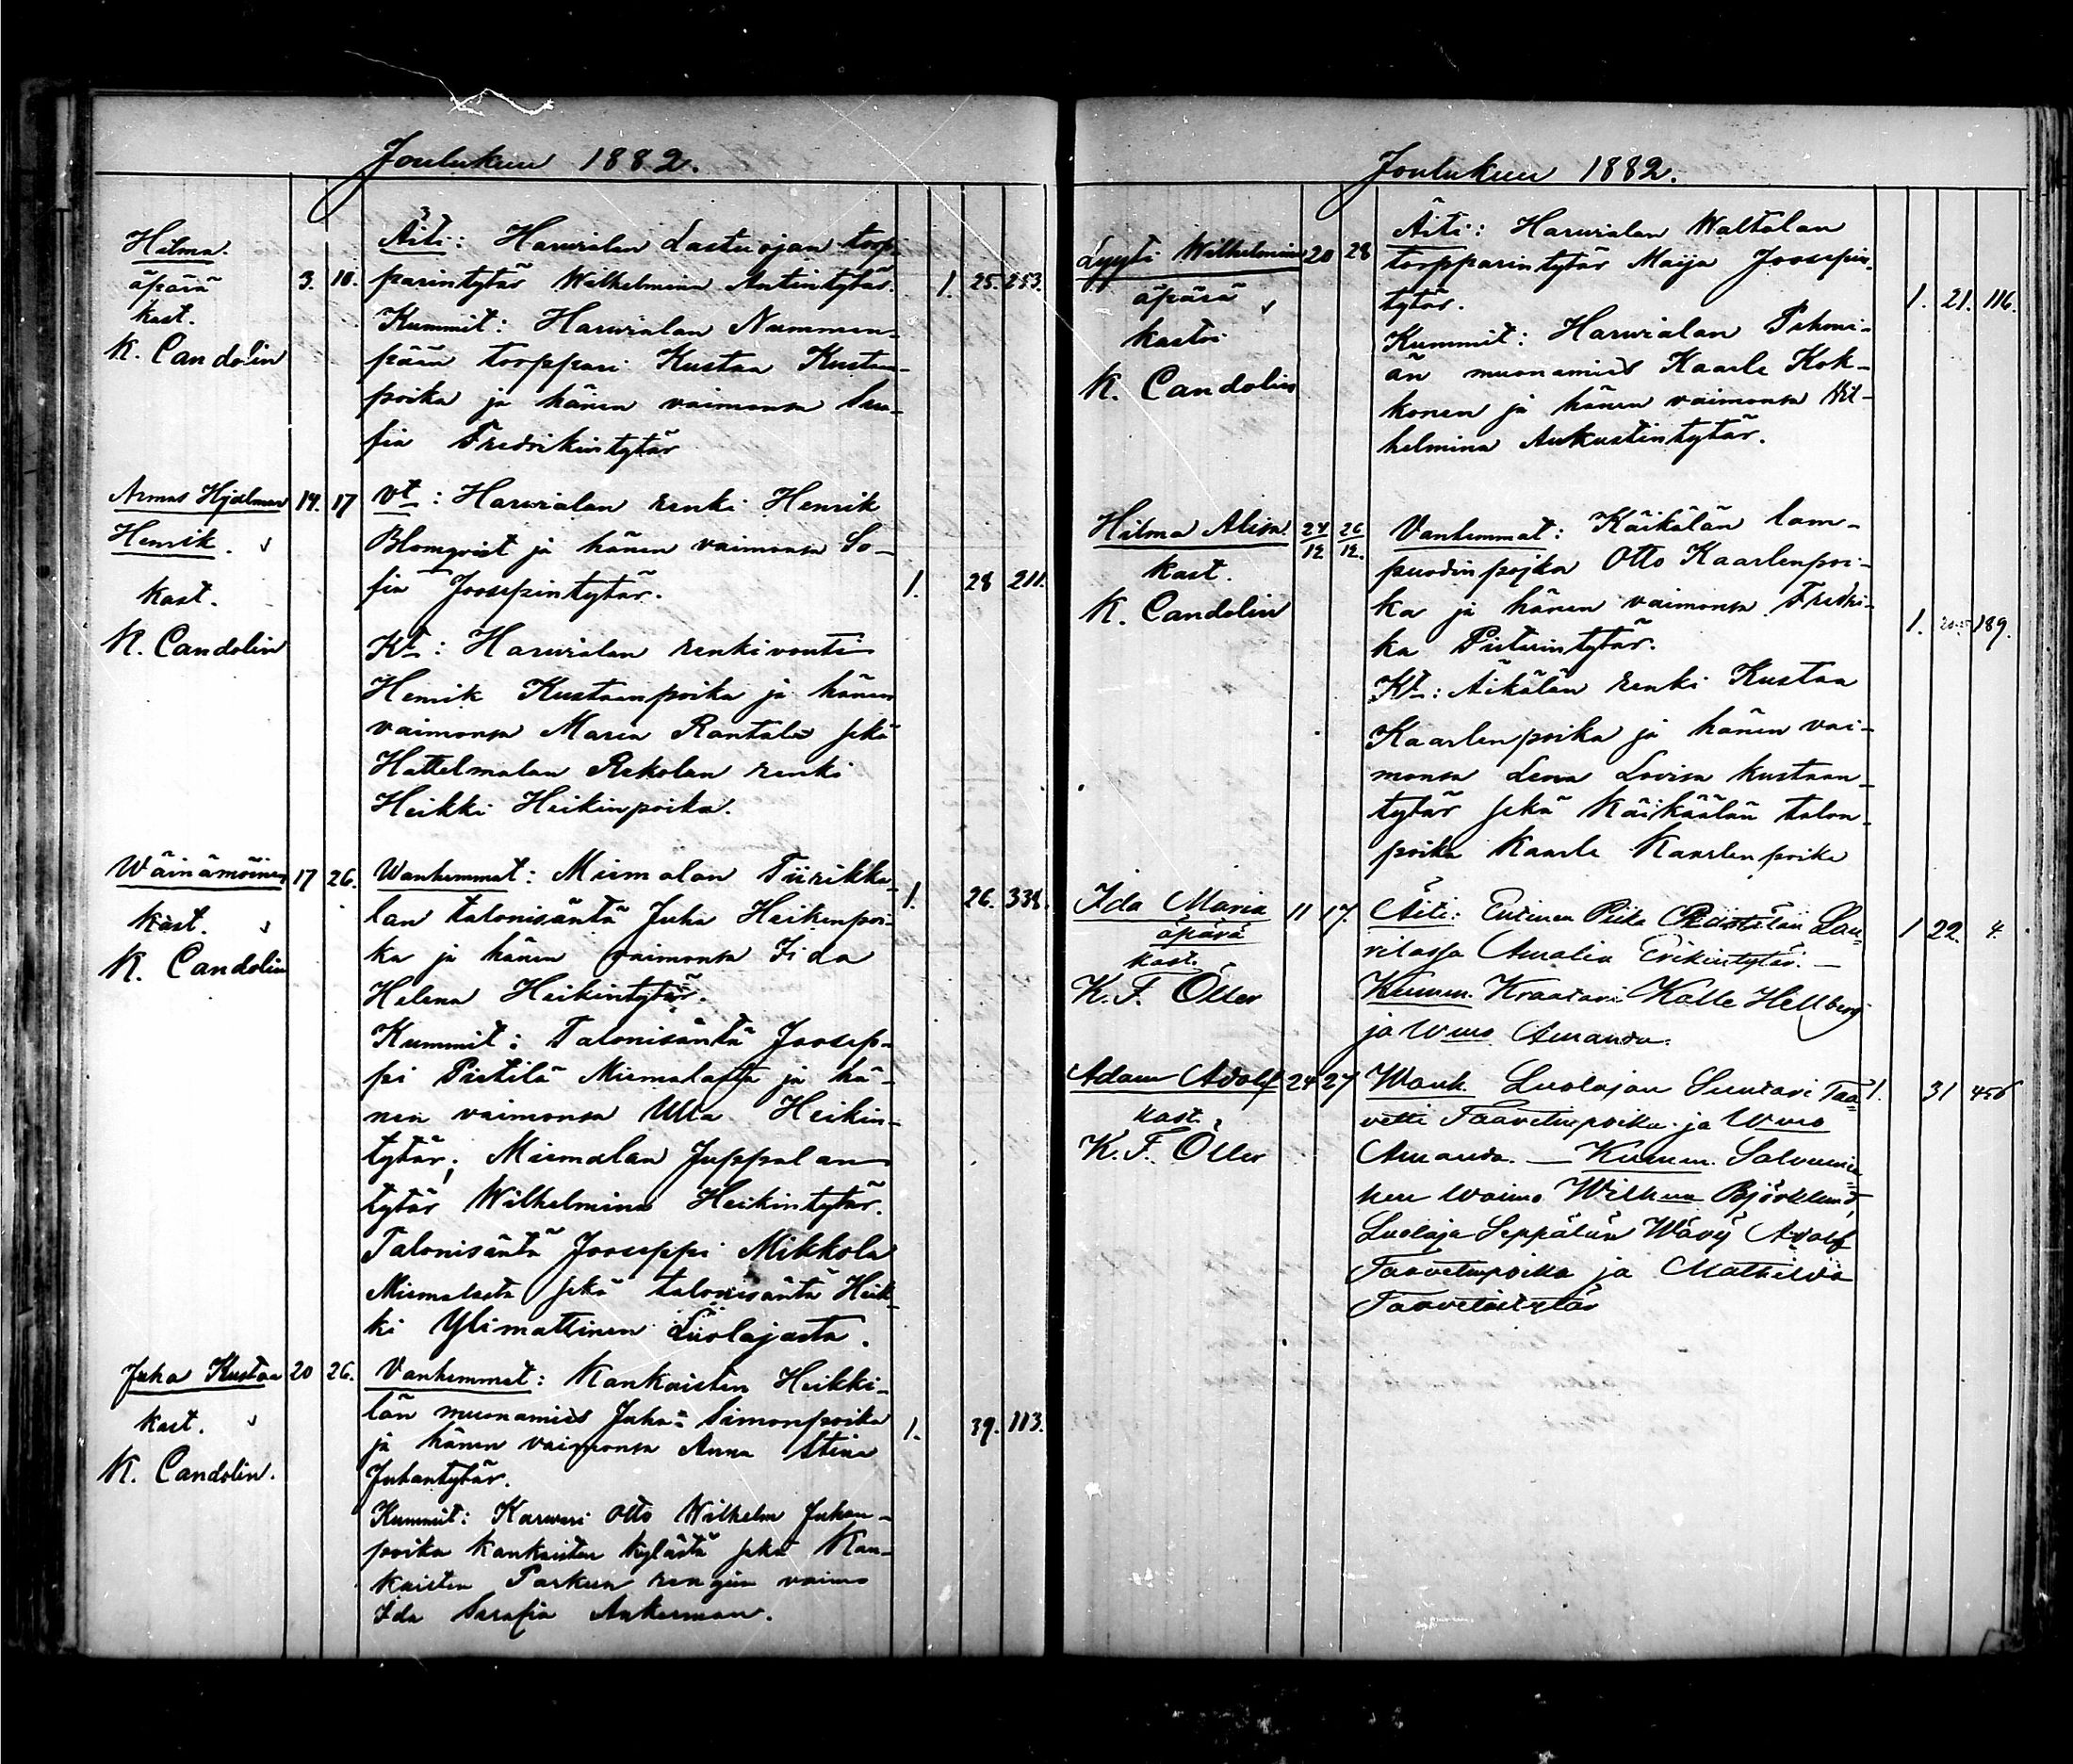 Joulukuu 1882.
Hilma.
äpärä
kast.
K. Candolin
3. 10.
Äiti: Harvialan Lastuojan torp-
parintytär Wilhelmina Antintytär.
Kummit: Harvialan Nummen-
pään torppari Kustaa Kustaan-
poika ja hänen vaimonsa Sera-
fia Fredrikintytär
1. 25. 253.
Armas Hjalmar
Henrik.
kast.
K. Candolin
14. 17
Vt: Harvialan renki Henrik
Blomqvist ja hänen vaimonsa So-
fia Joosepintytär.
Kt: Harvialan renkivouti
Henrik Kustaanpoika ja hänen
vaimonsa Maria Rantala sekä
Hattelmalan Rekolan renki
Heikki Heikinpoika.
1. 28 211.
Wäinämöinen
kast.
K. Candolin
17 26.
Wanhemmat: Miemalan Tiirikka-
lan talonisäntä Juha Heikinpoi-
ka ja hänen vaimonsa Iida
Helena Heikintytär.
Kummit: Talonisäntä Joosep-
pi Pietilä Miemalasta ja hä-
nen vaimonsa Ulla Heikin-
tytär; Miemalan Juppalan
tytär Wilhelmina Heikintytär.
Talonisäntä Jooseppi Mikkola
Miemalasta sekä talonisäntä Heik-
ki Ylimattinen Luolajasta.
1. 26. 338.
Juha Kustaa
kast.
K. Candolin.
20 26.
Vanhemmat: Kankaisten Heikki-
län muonamies Juha Simonpoika
ja hänen vaimonsa Anna Stina
Juhantytär.
Kummit: Karvari Otto Wilhelm Juhan-
poika Kankaisten kylästä sekä Kan-
kaisten Parkun rengin vaimo
Ida Serafia Ankerman.
1. 39. 113.
Joulukuu 1882.
Lyyti Wilhelmina
äpärä
kastoi
K. Candolin
20 28
Äiti: Harvialan Waltolan
torpparintytär Maija Joosepin-
tytär.
Kummit: Harvialan
än muonamies Kaarle Kok-
konen ja hänen vaimonsa Wil-
helmina Aukustintytär.
1. 21. 116.
Hilma Alisa.
kast.
K. Candolin
24/12 26/12.
Vanhemmat: Käikälän lam-
puodinpojka Otto Kaarlenpoi-
ka ja hänen vaimonsa Fredri-
ka Pieturintytär.
Kt: Äikälän renki Kustaa
Kaarlenpoika ja hänen vai-
monsa Leena Lovisa Kustaan-
tytär sekä Käikäälän talon-
poika Kaarle Kaarlenpoika
1. 189.
Ida Maria
äpärä
kast.
K. F. Öller
11 17.
Äiti: Entinen Piika Lau-
rilassa Amalia Erikintytär. —
Kumm. Kraatari Kalle Hellberg
ja Wmo Amanda.
1 22. 4.
Adam Adolf
kast.
K. F. Öller
24 27
Wanh. Luolajan Suutari Taa-
vetti Taavetinpoika ja Wmo
Amanda. — Kumm.
Waimo Wilhna Björklund,
Luolaja Seppälän Wävy Adolf
Taavetinpoika ja Mathilda
Taavetintytär
1. 31 456